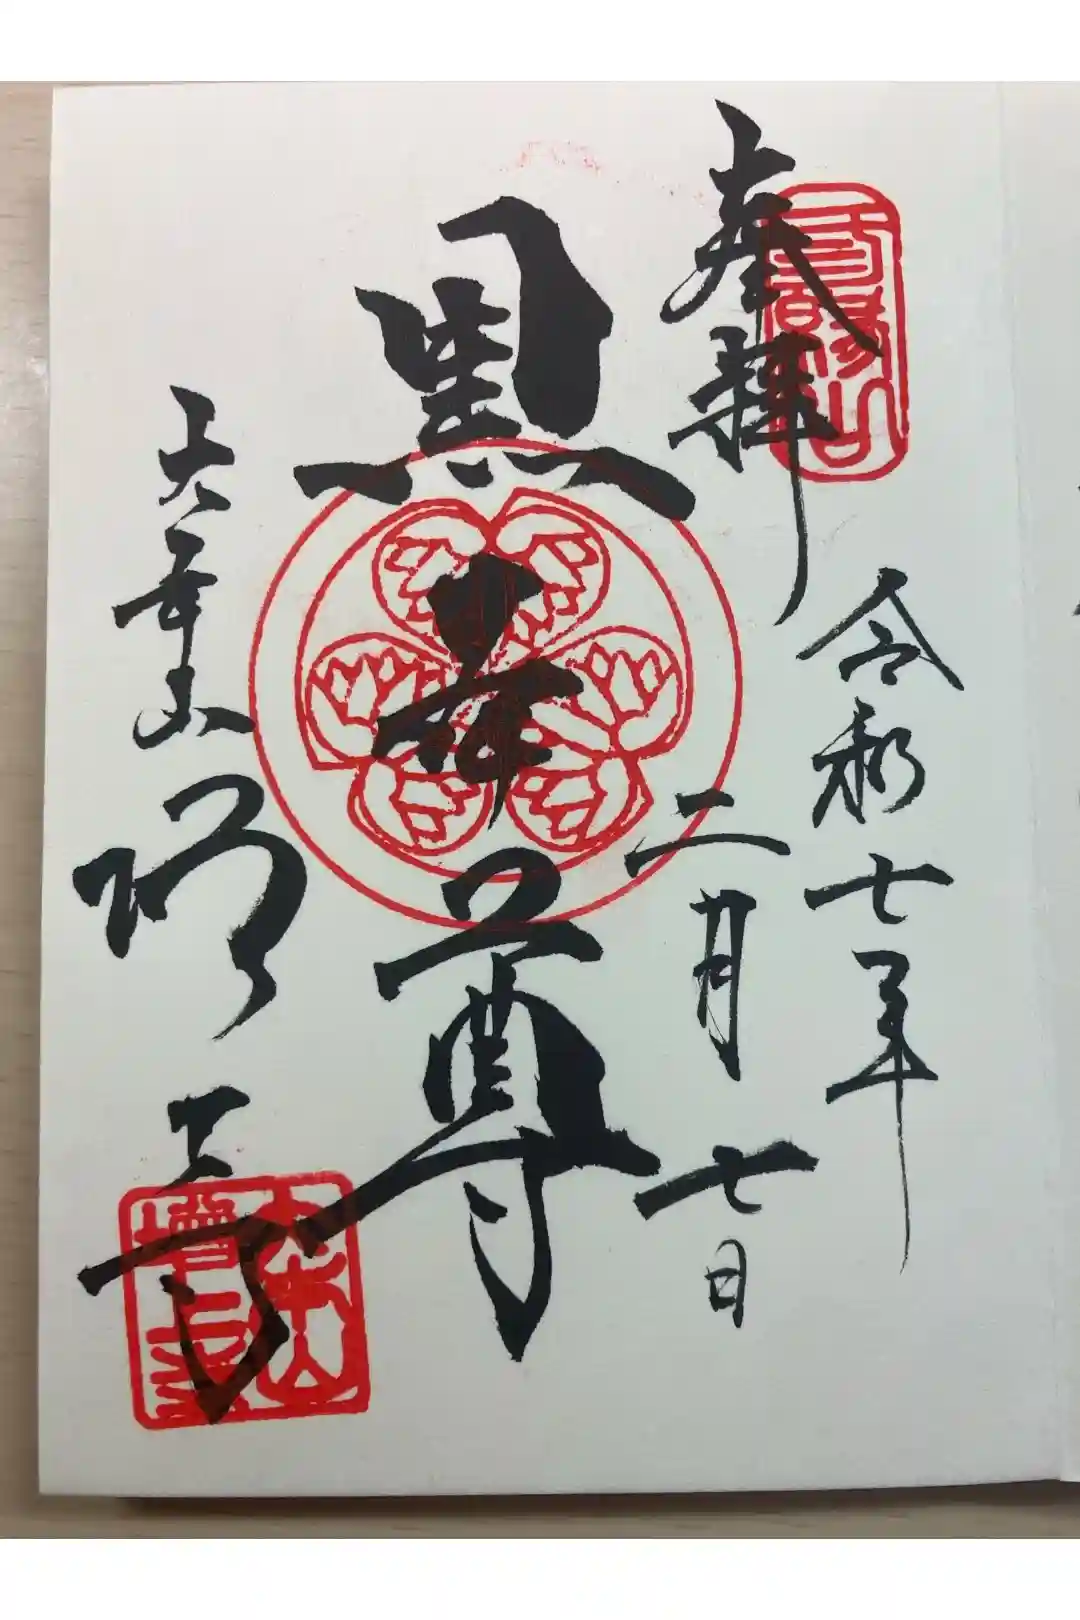 奉拝
令和七年
二月七日
黒本尊
大本山
増上寺
大本山
増上寺